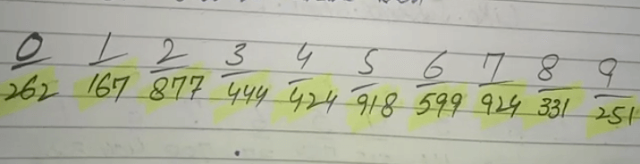 0 1 2 3 4 5 6 7 8 9
262 167 877 444 424 918 599 924 331 251